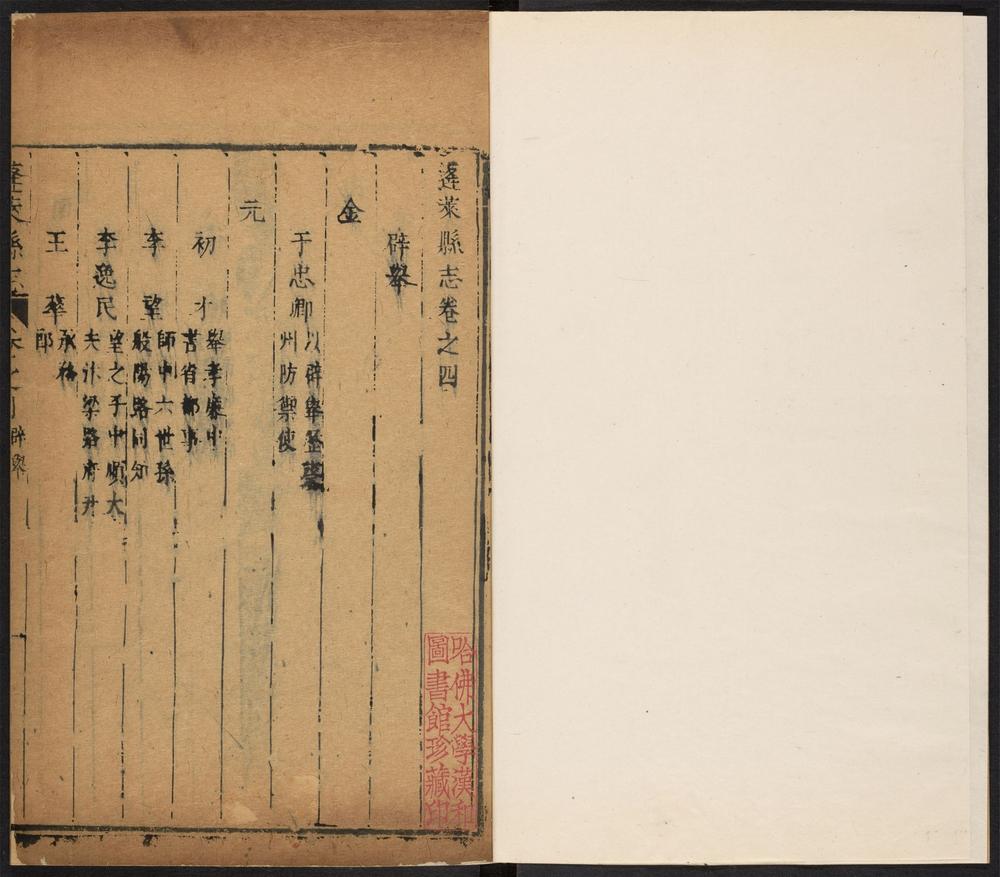 蓬萊縣志卷之四
辟舉
金
于忠卿
以辟舉歷
州防禦使
元
初才
舉孝廉中
書省都事
李望
師中六世孫
般陽路同知
李逸民
望之子中順大
夫汴梁路府尹
王華
承務
郎
蓬萊縣志
卷之四
辟舉
哈佛大學漢和
圖書館珍藏印